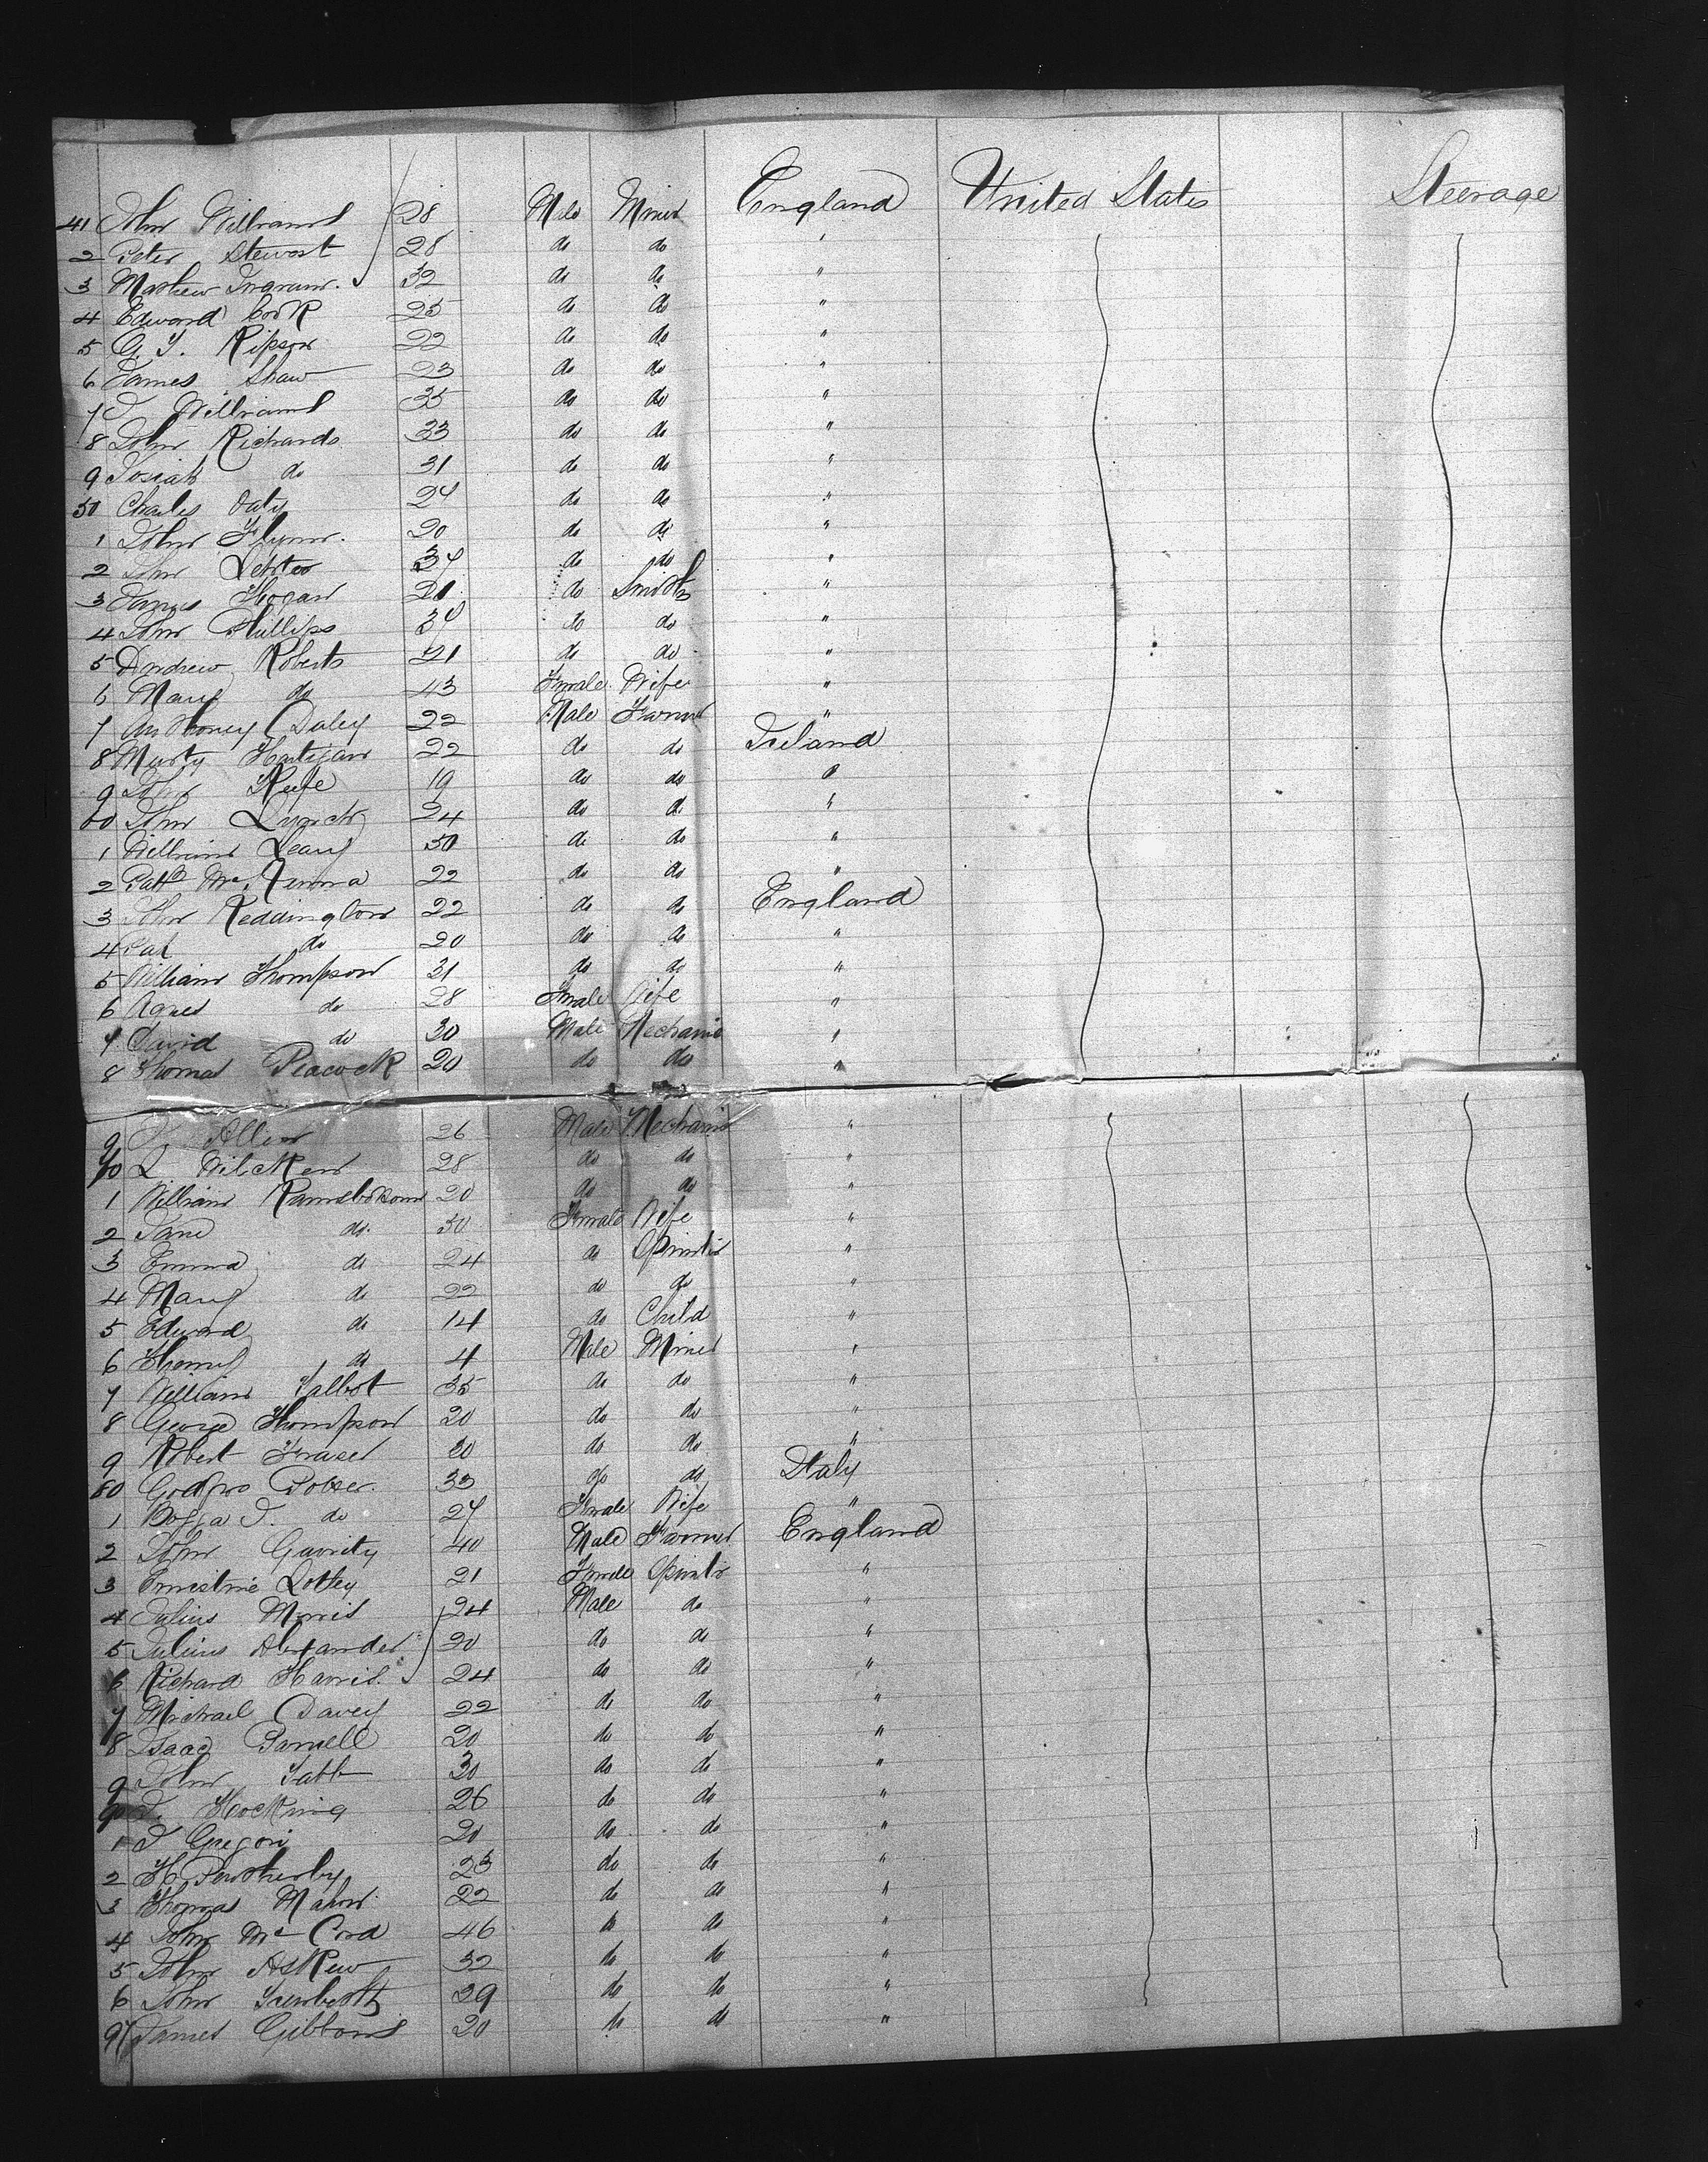 41 John Williams 28 Male Miner England United States Steerage
2 Peter Stewart 28 do do "
3 Mathew Ingram. 32 do do "
4 Edward Cook 25 do do "
5 G. J. Ripson 22 do do "
6 James Shaw 23 do do "
7 J Williams 35 do do "
8 John Richards 33 do do "
9 Josiah do 31 do do "
50 Charles Daly 24 do do "
1 John Flynn. 20 do do "
2 John 34 do do "
3 James Hogan 21 do Smith "
4 John Phillips 34 do do "
5 Andrew Roberts 21 do do "
6 Mary do 43 Female Wife "
7 Anthoney Daley 22 Male Farmer "
8 Murty Hartigan 22 do do Ireland
9 John Keefe 19 do do "
60 John Lynch 24 do do "
1 William Leary 50 do do "
2 Patk McKenna 22 do do "
3 John Reddington 22 do do England
4 Pat do 20 do do "
5 William Thompson 31 do do "
6 Agnes do 28 Female Wife "
7 David do 30 Male Mechanic "
8 Thomas Peacock 20 do do "
9 J. Allen 26 Male Mechanic "
70 L Wilcken 28 do do "
1 William Ramsbottom 20 do do "
2 Jane do. 50 Female Wife "
3 Emma do 24 do Spinster "
4 Mary do 22 do do "
5 Edward do 14 do Child "
6 Thomas do 4 Male Miner "
7 William Talbot 35 do do "
8 George Thompson 20 do do "
9 Robert Fraser 20 do do "
80 Potser. 33 do do Italy
1 J. do 27 Female Wife "
2 John Garrity 40 Male Farmer England
3 Ernestine Lottey 21 Female Spinster "
4 Julius Morris 24 Male do "
5 Julius Alexander 20 do do "
6 Richard Harris. 24 do do "
7 Michael Davey 22 do do "
8 Isaac Parnell 20 do do "
9 John Tabb 30 do do "
90 J. Hocking 26 do do "
1 J Gregori 20 do do "
2 H 23 do do "
3 Thomas Mahon 22 do do "
4 John McCord 46 do do "
5 John Askew 32 do do "
6 John 29 do do "
97 James Gibbons 20 do do "